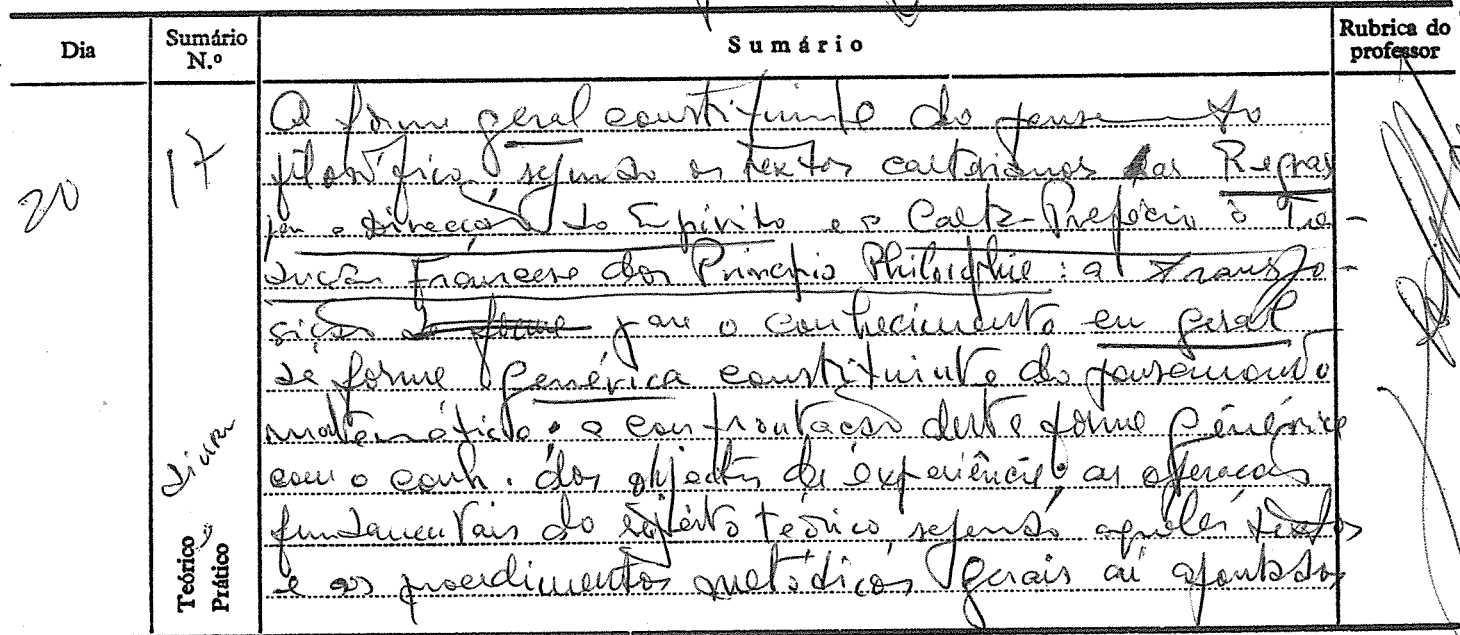 Dia
Sumário N.º
Sumário
Rubrica do professor
20
17
Teórico
Prático
A forma geral constituinte do pensamento
filosófico segundo os textos cartesianos das Regras
para a Direcção do Espírito e a Carta-Prefácio à Tra-
dução Francesa dos Principia Philosophiae: a transpo-
sição da forme para o conhecimento em geral
de forma genérica constituinte do pensamento
matemático: a confrontação desta forma genérica
com o conh. dos objectos da experiência: as operações
fundamentais do sujeito teórico, segundo aqueles textos
e os procedimentos metódicos gerais aí apontados